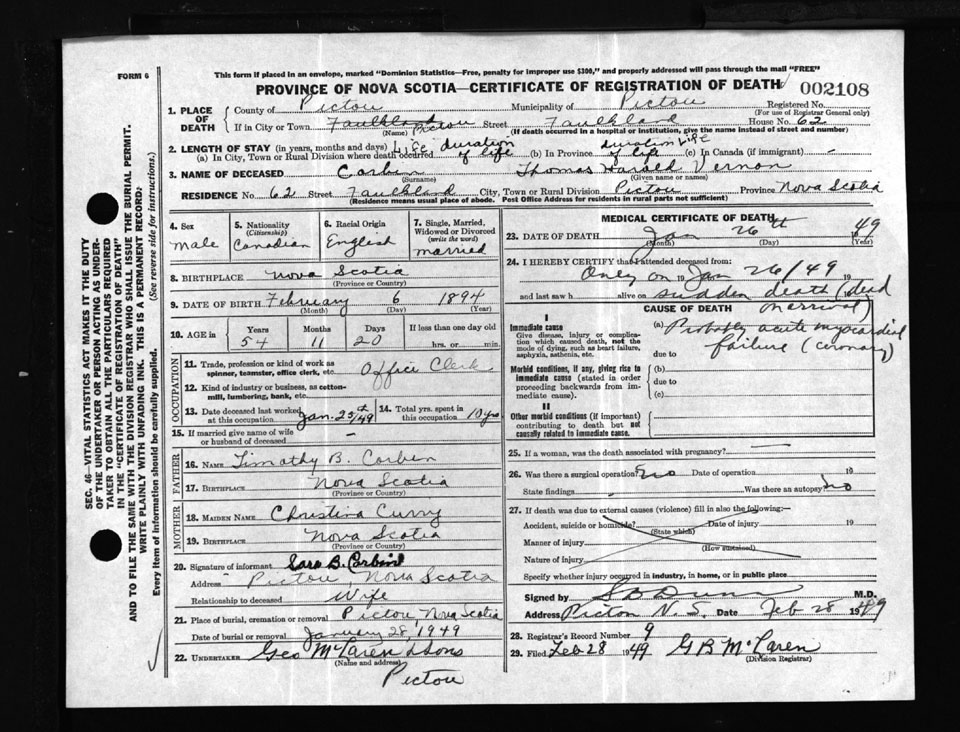 FORM 6
This form if placed in an envelope, marked "Dominion Statistics—Free, penalty for improper use $300," and properly addressed will pass through the mail "FREE"
PROVINCE OF NOVA SCOTIA—CERTIFICATE OF REGISTRATION OF DEATH 002108
1. PLACE OF DEATH
County of Pictou Municipality of Pictou Registered No.
(For use of Registrar General only)
If in City or Town Faulkland Pictou Street Faulkland House No. 62
(Name) (If death occurred in a hospital or institution, give the name instead of street and number)
2. LENGTH OF STAY (in years, months and days)
(a) In City, Town or Rural Division where death occurred Life duration of life (b) In Province duration of life Life (c) In Canada (if immigrant) -
3. NAME OF DECEASED Corbin Thomas Vernon
(Surname) (Given name or names)
RESIDENCE No. 62 Street Faulkland City, Town or Rural Division Pictou Province Nova Scotia
(Residence means usual place of abode. Post Office Address for residents in rural parts not sufficient)
4. Sex male
5. Nationality (Citizenship) Canadian
6. Racial Origin English
7. Single, Married, Widowed or Divorced (write the word) married
8. BIRTHPLACE Nova Scotia
(Province or Country)
9. DATE OF BIRTH February 6 1894
(Month) (Day) (Year)
10. AGE in Years Months Days If less than one day old
54 11 20 hrs. or min.
OCCUPATION
11. Trade, profession or kind of work as spinner, teamster, office clerk, etc. Office Clerk
12. Kind of industry or business, as cotton-mill, lumbering, bank, etc.
13. Date deceased last worked at this occupation Jan. 25th/49 14. Total yrs. spent in this occupation 10 yrs.
15. If married give name of wife or husband of deceased -
FATHER
16. NAME Timothy B. Corbin
17. BIRTHPLACE Nova Scotia
(Province or Country)
MOTHER
18. MAIDEN NAME Christina Curry
19. BIRTHPLACE Nova Scotia
(Province or Country)
20. Signature of informant Sara B. Corbin
Address Pictou, Nova Scotia
Relationship to deceased Wife
21. Place of burial, cremation or removal Pictou, Nova Scotia
Date of burial or removal January 28, 1949
22. UNDERTAKER Geo McLaren & Sons
(Name and address)
Pictou
MEDICAL CERTIFICATE OF DEATH
23. DATE OF DEATH Jan 26th 1949
(Month) (Day) (Year)
24. I HEREBY CERTIFY that I attended deceased from:
Only on 19 Jan 26/49 19
and last saw h alive on sudden death (dead on arrival)
CAUSE OF DEATH
I
Immediate cause
Give disease, injury or complication which caused death, not the mode of dying, such as heart failure, asphyxia, asthenia, etc.
(a) Probably acute myocardial failure (coronary)
due to
Morbid conditions, if any, giving rise to immediate cause (stated in order proceeding backwards from immediate cause).
(b)
due to
(c)
II
Other morbid conditions (if important) contributing to death but not causally related to immediate cause.
25. If a woman, was the death associated with pregnancy? —
26. Was there a surgical operation? No Date of operation 19
State findings Was there an autopsy? No
27. If death was due to external causes (violence) fill in also the following:
Accident, suicide or homicide? Date of injury 19
(State which)
Manner of injury
(How sustained)
Nature of injury
Specify whether injury occurred in industry, in home, or in public place
Signed by S D Dunn M.D.
Address Pictou N. S. Date Feb 28 1949
28. Registrar's Record Number 9
29. Filed Feb 28 1949 G B McLaren
(Division Registrar)
SEC. 46—VITAL STATISTICS ACT MAKES IT THE DUTY
OF THE UNDERTAKER OR PERSON ACTING AS UNDER-
TAKER TO OBTAIN ALL THE PARTICULARS REQUIRED
IN THE "CERTIFICATE OF REGISTRATION OF DEATH"
AND TO FILE THE SAME WITH THE DIVISION REGISTRAR WHO SHALL ISSUE THE BURIAL PERMIT.
WRITE PLAINLY WITH UNFADING INK. THIS IS A PERMANENT RECORD.
Every item of information should be carefully supplied. (See reverse side for instructions.)